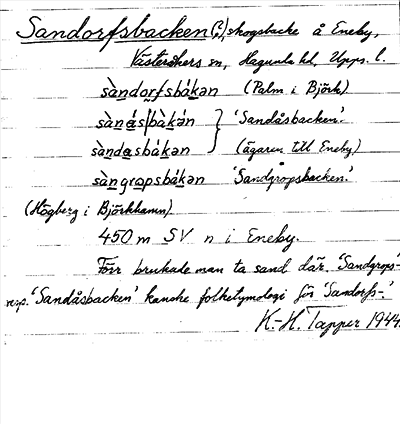 Sandorfsbacken(?), skogsbacke å Eneby,
Västeråkers sn, Hagunda hd, Upps. l.
sàndorfsbákən (Palm i Björk)
sànás|bàkən } 'Sandåsbacken'.
sàndasbákən (ägaren till Eneby)
sàngrapsbákən 'Sandgropsbacken.'
(Högberg i Björkhamn)
450 m SV n i Eneby.
Förr brukade man ta sand där. 'Sandgrops-'
resp. 'Sandåsbacken' kanske folketymologi för 'Sandorfs-'.
K.-H. Tapper 1944.